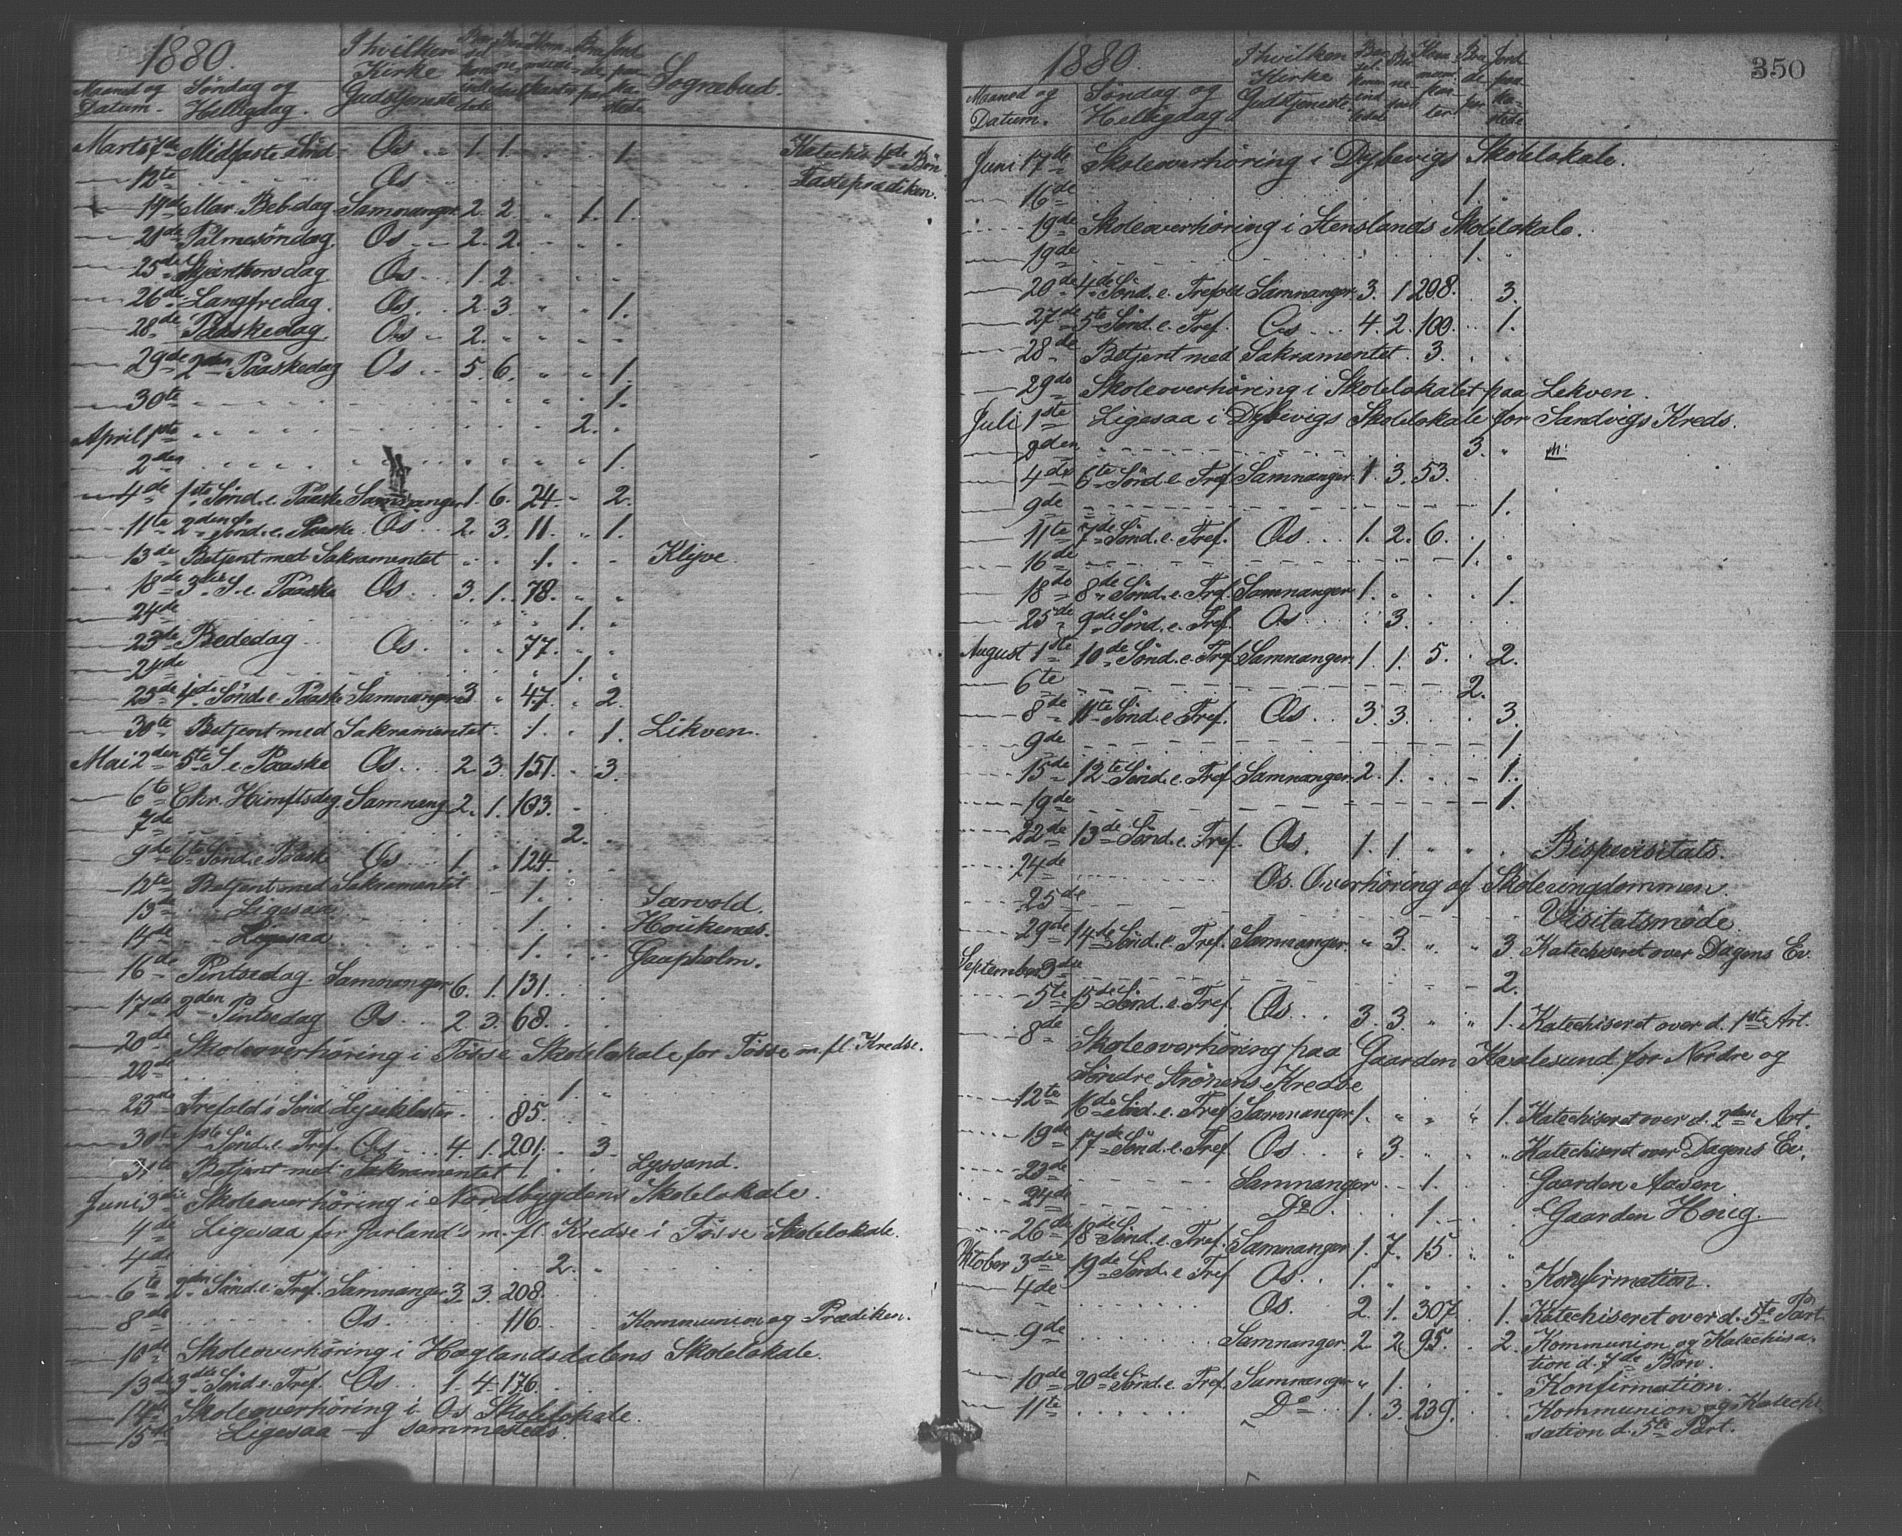 1880.
Maaned og Datum. Søndag og Helligdag. I hvilken Kirke Gudstjeneste Sognebud.
Marts 7de Midfaste Sønd. Os 1. 1. 1. Katechis. 4de Bøn
12te Os Fasteprædiken.
19de Mar. Beb.dag Samnanger 2. 2. 1. 1.
21de Palmesøndag. Os 2. 2.
25de Skjærthorsdag Os 1. 2.
26de Langfredag. Os. 2. 3. 1.
28de Paaskedag Os 2.
29de 2den Paaskedag Os 5. 6. 1.
30te 1.
April 1ste 2.
2den 1.
4de 1ste Sønd. e. Paaske Samnanger 1. 6. 24. 2.
11te 2den Sønd. e. Paaske Os 2. 3. 11. 1.
13de Betjent med Sakramentet 1. Klyve.
18de 3die S. e. Paaske Os 3. 1. 78.
24de 1.
23de Bededag Os. 77.
24de 1.
25de 4de Sønd. e. Paaske Samnanger 3 47. 2.
30te Betjent med Sakramentet. 1. 1. Likven.
Mai 2den 5te S. e. Paaske Os. 2. 3. 151. 3.
6te Chr. Himftsdag Samnang 2. 1. 103.
7de 2.
9de 6te Sønd. e. Paaske Os 1. 124.
12te Betjent med Sakramentet 1. Særvold.
13de Ligesaa 1. Houkenæs.
14de Ligesaa 1. Gaapholm.
16de Pintsedag. Samnanger 6. 1. 131.
17de 2den Pintsedag Os. 2. 3. 68.
20de Skoleoverhøring i Tøsse Skolelokale for Tøsse m. fl. Kredse.
22de 1.
23de Trefold's Sønd Lysekloster. 85.
30te 1ste Sønd. e. Tref. Os 4. 1. 201. 3.
31te Betjent med Sakramentet 1. Lyssand.
Juni 3die Skoleoverhøring i Nordbygdens Skolelokale.
4de Ligesaa for Jarland's m. fl. Kredse i Tøsse Skolelokale.
4de 2.
6te 2den Sønd. e. Tref. Samnanger 3. 3. 208.
8de Os. 116. Kommunion og Prædiken.
10de Skoleoverhøring i Haglandsdalens Skolelokale.
13de 3die Sønd. e. Tref. Os 1. 4. 176.
14de Skoleoverhøring i Os Skolelokale.
15de Ligesaa sammesteds.
1880. 350
Maaned og Datum. Søndag og Helligdag I hvilken Kirke Gudstjeneste
Juni 17de Skoleoverhøring i Dybevigs Skolelokale.
16de 1.
19de Skoleoverhøring i Stenslands Skolelokale.
19de 1.
20de 4de Sønd. e. Trefold Samnanger 3. 1 298. 3.
27de 5te Sønd. e. Tref. Os 4. 2. 100. 1.
28de Betjent med Sakramentet. 3.
29de Skoleoverhøring i Skolelokalet paa Lekven.
Juli 1ste Ligesaa i Dybevigs Skolelokale for Sandvigs Kreds.
2den 3.
4de 6te Sønd. e. Tref Samnanger 1. 3. 53.
9de 1.
11te 7de Sønd. e. Tref. Os 1. 2. 6.
16de 1.
18de 8de Sønd. e. Tref. Samnanger 1. 1.
25de 9de Sønd. e. Tref. Os 3.
August 1ste 10de Sønd. e. Tref Samnanger. 1. 1. 5. 2.
6te 2.
8de 11te Sønd. e. Tref. Os 3. 3. 3.
9de 1.
15de 12te Sønd. e. Tref Samnanger. 2. 1. 1.
19de 1.
22de 13de Sønd. e. Tref. Os. 1. 1. Bispevisitats.
24de Os. Overhøring af Skoleungdommen.
25de Visitatsmøde.
29de 14de Sønd. e. Tref. Samnanger. 3. 3. Katechiseret over Dagens Ev.
September 3die 2.
5te 15de Sønd. e. Tref. Os. 3. 3. 1. Katechiseret over d. 1ste Art.
8de Skoleoverhøring paa Gaarden Kvalesund for Nordre og
Søndre Strønens Kredse
12te 16de Sønd. e. Tref Samnanger 1. 1. Katechiseret over d. 2den Art.
19de 17de Sønd. e. Tref Os. 3. Katechiseret over Dagens Ev.
23de Samnanger 1. Gaarden Aasen.
24de Do. 1. Gaarden Houg.
26de 18de Sønd. e. Tref. Samnanger 1. 7. 15.
Oktober 3die 19de Sønd. e. Tref Os. 1. Konfirmation.
4de Os. 2. 1. 307. 1. Katechiseret over d. 5te Part
9de Samnanger. 2 2. 95. 2. Kommunion og Katechisa-
tion d. 7de Bøn.
10de 20de Sønd. e. Tref. Samnanger 1. Konfirmation.
11te Do 1. 3. 239. Kommunion og Katechi-
sation d. 5te Part.